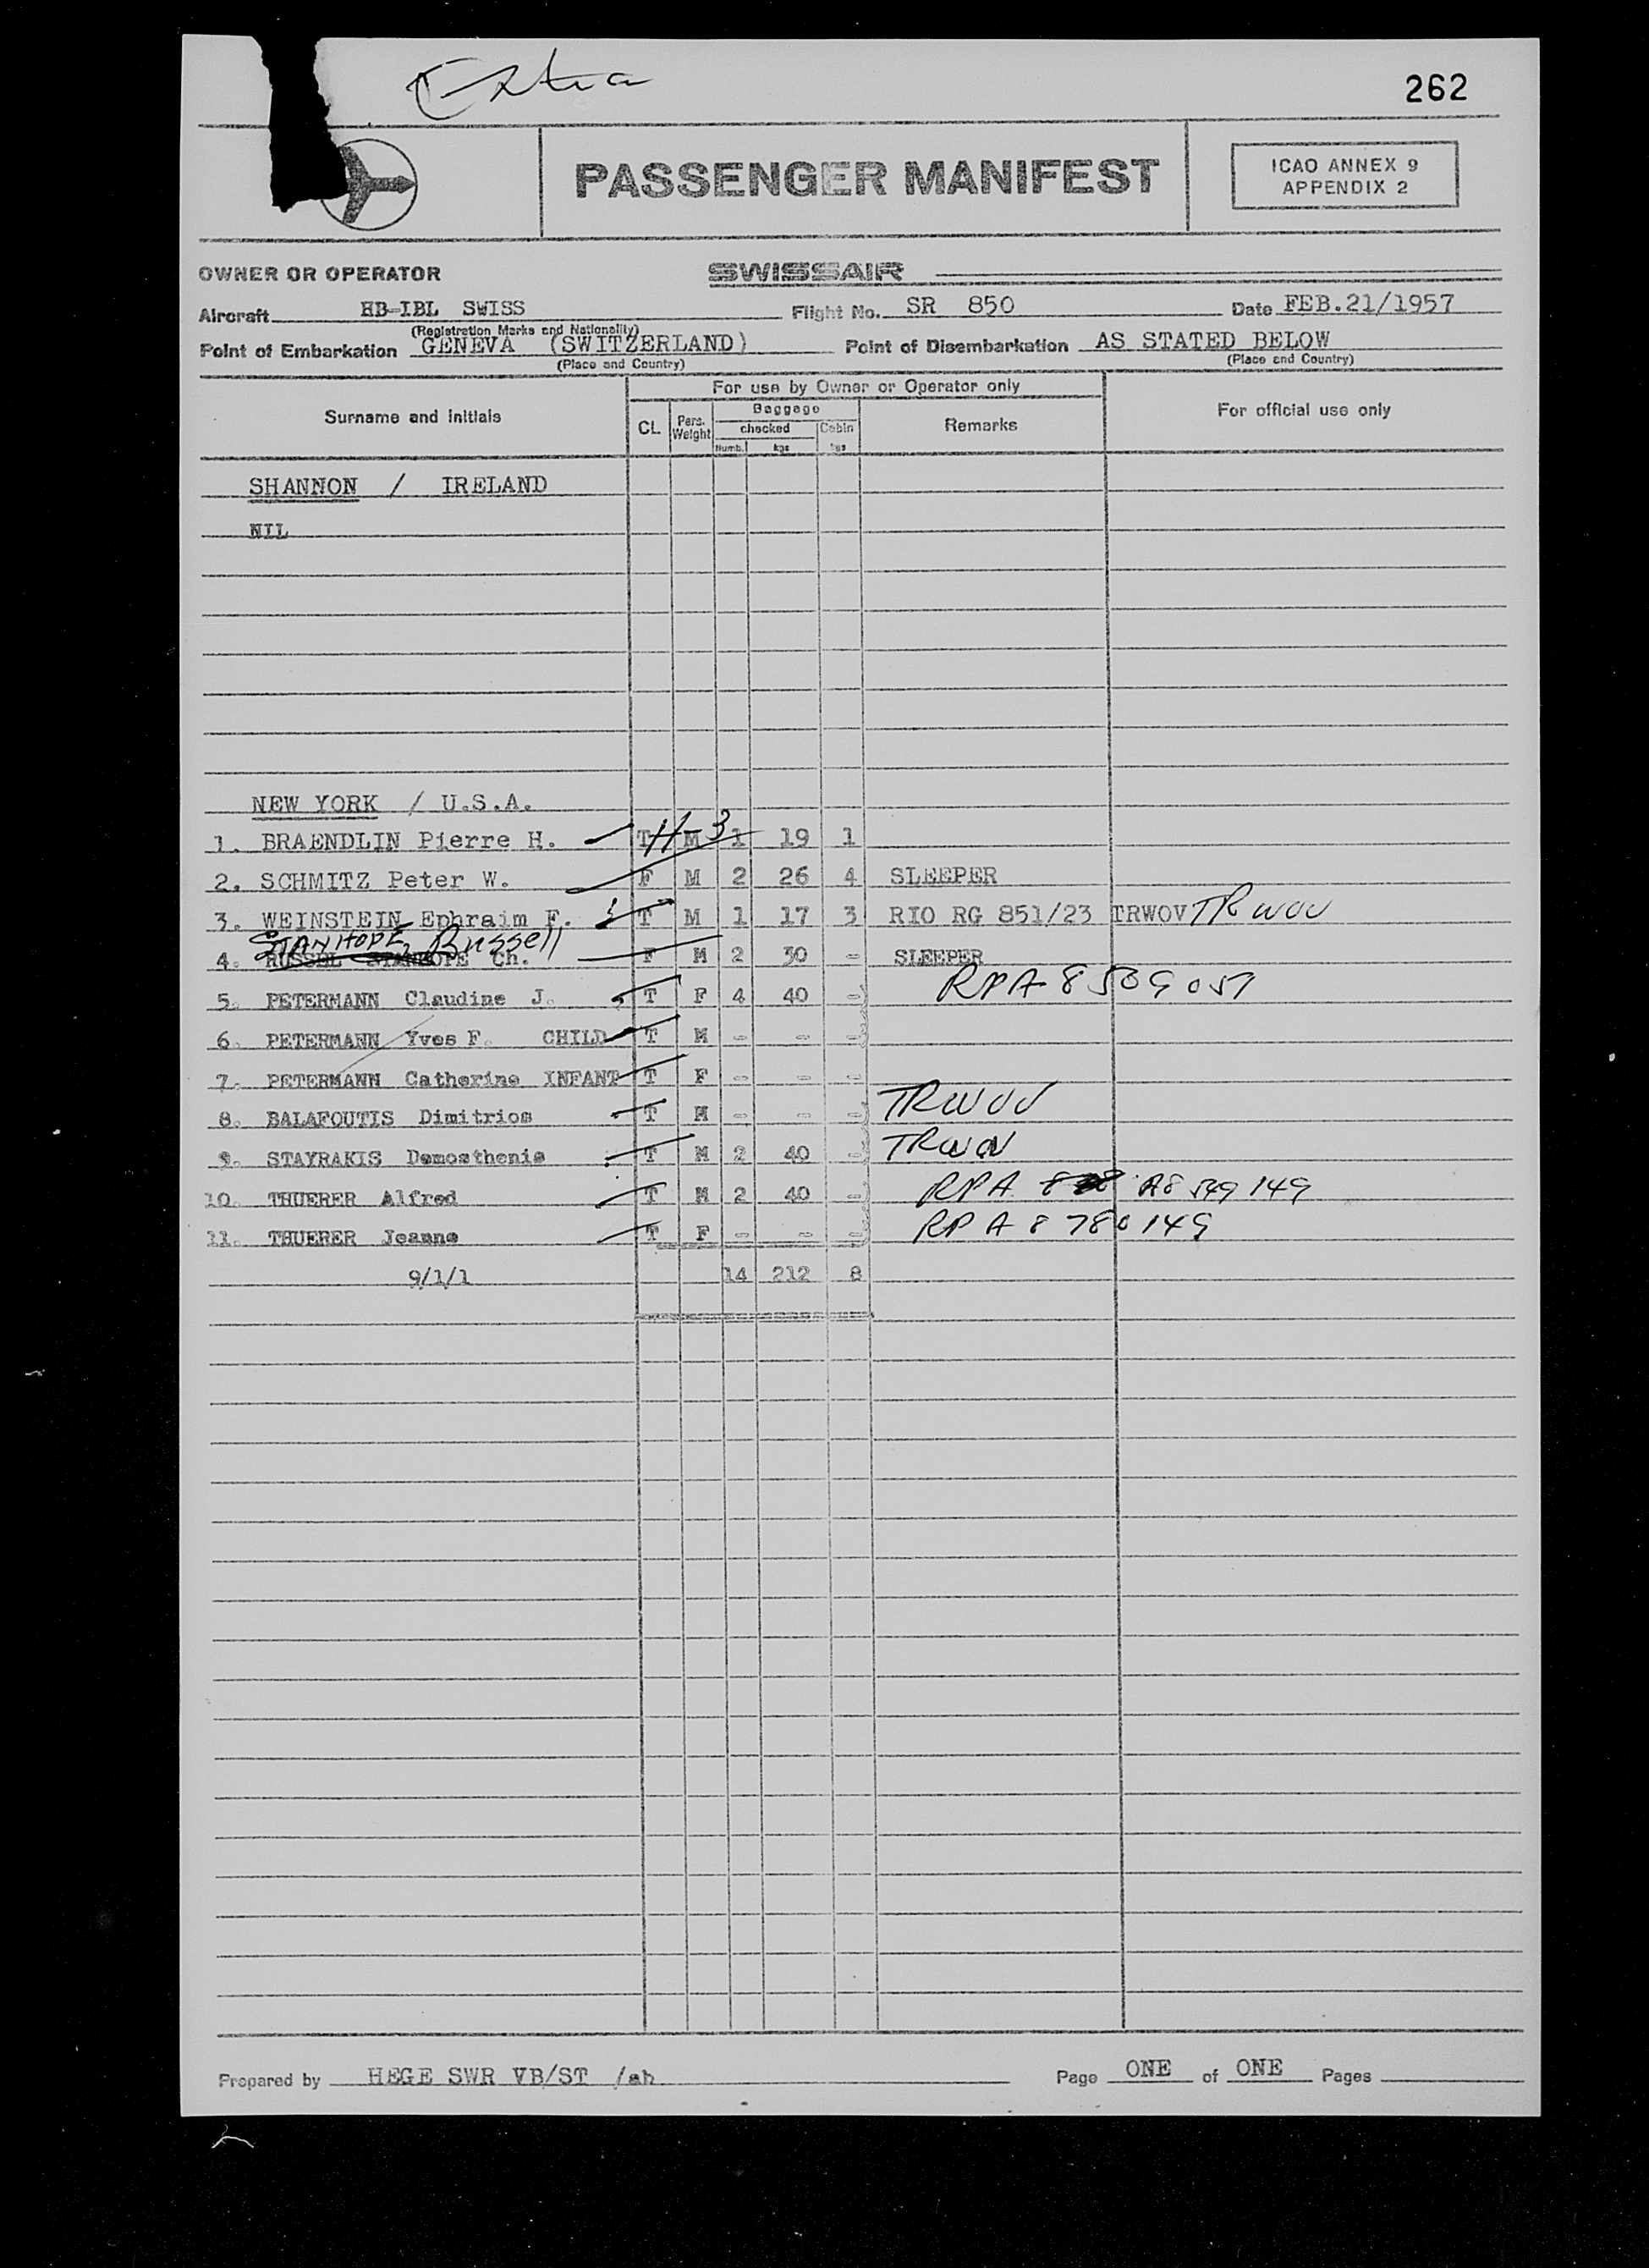 Extra
262
PASSENGER MANIFEST
ICAO ANNEX 9
APPENDIX 2
OWNER OR OPERATOR SWISSAIR
Aircraft HB-IBL SWISS Flight No. SR 850 Date FEB.21/1957
(Registration Marks and Nationality)
Point of Embarkation GENEVA (SWITZERLAND) Point of Disembarkation AS STATED BELOW
(Place and Country) (Place and Country)
For use by Owner or Operator only
Surname and initials CL Pers. Weight Baggage checked Numb. kgs Cabin kgs Remarks For official use only
SHANNON / IRELAND
NIL
NEW YORK / U.S.A.
1. BRAENDLIN Pierre H. T H-3 M 1 19 1
2. SCHMITZ Peter W. F M 2 26 4 SLEEPER
3. WEINSTEIN Ephraim F. T M 1 17 3 RIO RG 851/23 TRWOV TRWOV
STANHOPE, Russell
4. RUSSEL STANHOPE Ch. F M 2 30 - SLEEPER
RPA 8509051
5. PETERMANN Claudine J. T F 4 40 -
6. PETERMANN Yves F. CHILD T M - - -
7. PETERMANN Catherine INFANT T F - - -
8. BALAFOUTIS Dimitrios T M - - - TRWOV
9. STAYRAKIS Demosthenis T M 2 40 - TRWOV
10. THUERER Alfred T M 2 40 - RPA A8 549 149
11. THUERER Jeanne T F - - - RPA 8780149
9/1/1 14 212 8
Prepared by HEGE SWR VB/ST /ah Page ONE of ONE Pages